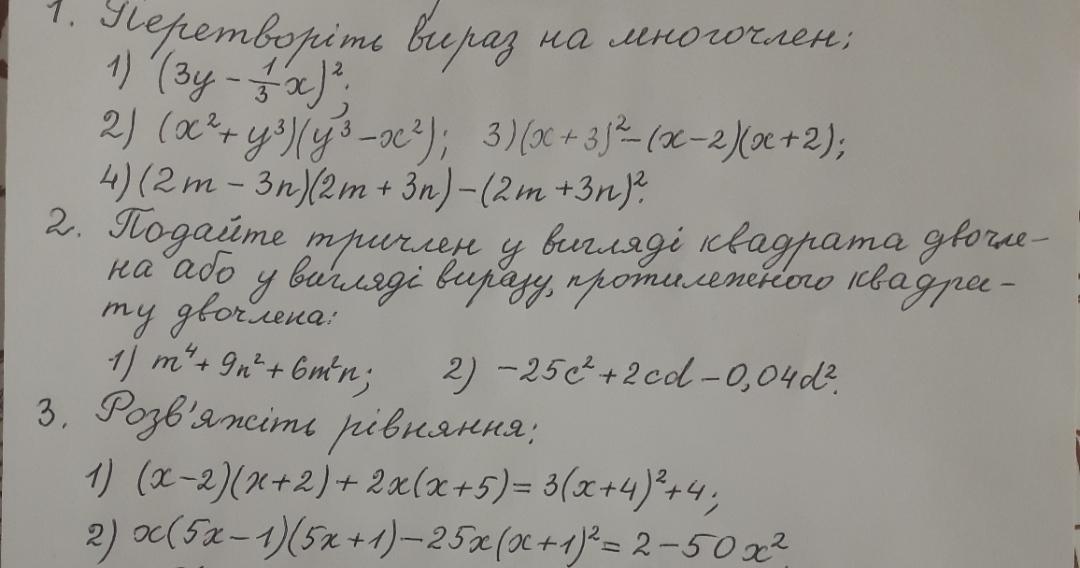 1. Перетворіть вираз на многочлен:
1) (3y - 1/3 x)²;
2) (x² + y³)(y³ - x²); 3) (x + 3)² - (x - 2)(x + 2);
4) (2m - 3n)(2m + 3n) - (2m + 3n)².
2. Подайте тричлен у вигляді квадрата двочле-
на або у вигляді виразу, протилежного квадра-
ту двочлена:
1) m⁴ + 9n² + 6m²n; 2) -25c² + 2cd - 0,04d².
3. Розв'яжіть рівняння:
1) (x - 2)(x + 2) + 2x(x + 5) = 3(x + 4)² + 4;
2) x(5x - 1)(5x + 1) - 25x(x + 1)² = 2 - 50x².